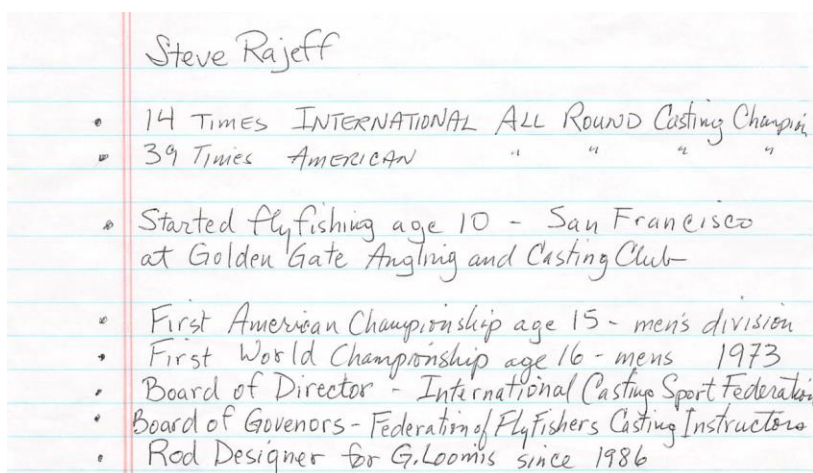 Steve Rajeff
• 14 Times INTERNATIONAL ALL ROUND Casting Champion
• 39 Times AMERICAN " " " "
• Started flyfishing age 10 - San Francisco
at Golden Gate Angling and Casting Club
• First American Championship age 15 - men's division
• First World Championship age 16 - mens 1973
• Board of Director - International Casting Sport Federation
• Board of Govenors - Federation of FlyFishers Casting Instructors
• Rod Designer for G.Loomis since 1986